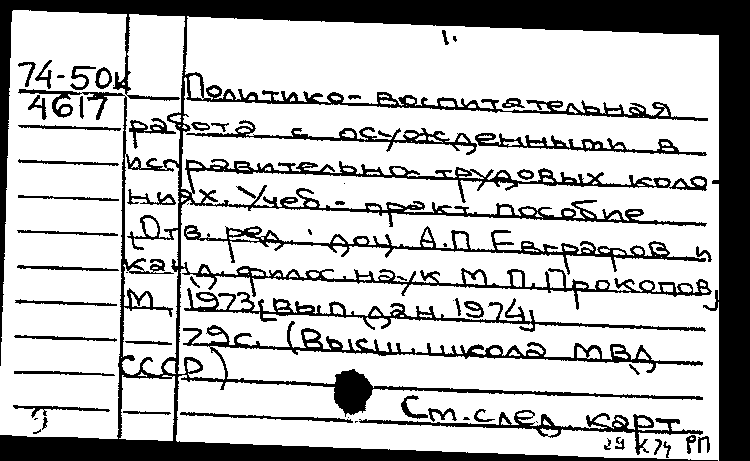 1.
74-50к
4617
Политико-воспитательная
работа с осужденными в
исправительно-трудовых коло-
ниях. Учеб.-практ. пособие
[Отв. ред.: доц. А.П. Евграфов и
канд. филос. наук М.П. Прокопов]
М., 1973 [вып. дан. 1974]
79с. (Высш. школа МВД
СССР)
См. след. карт
29 К 74 РП